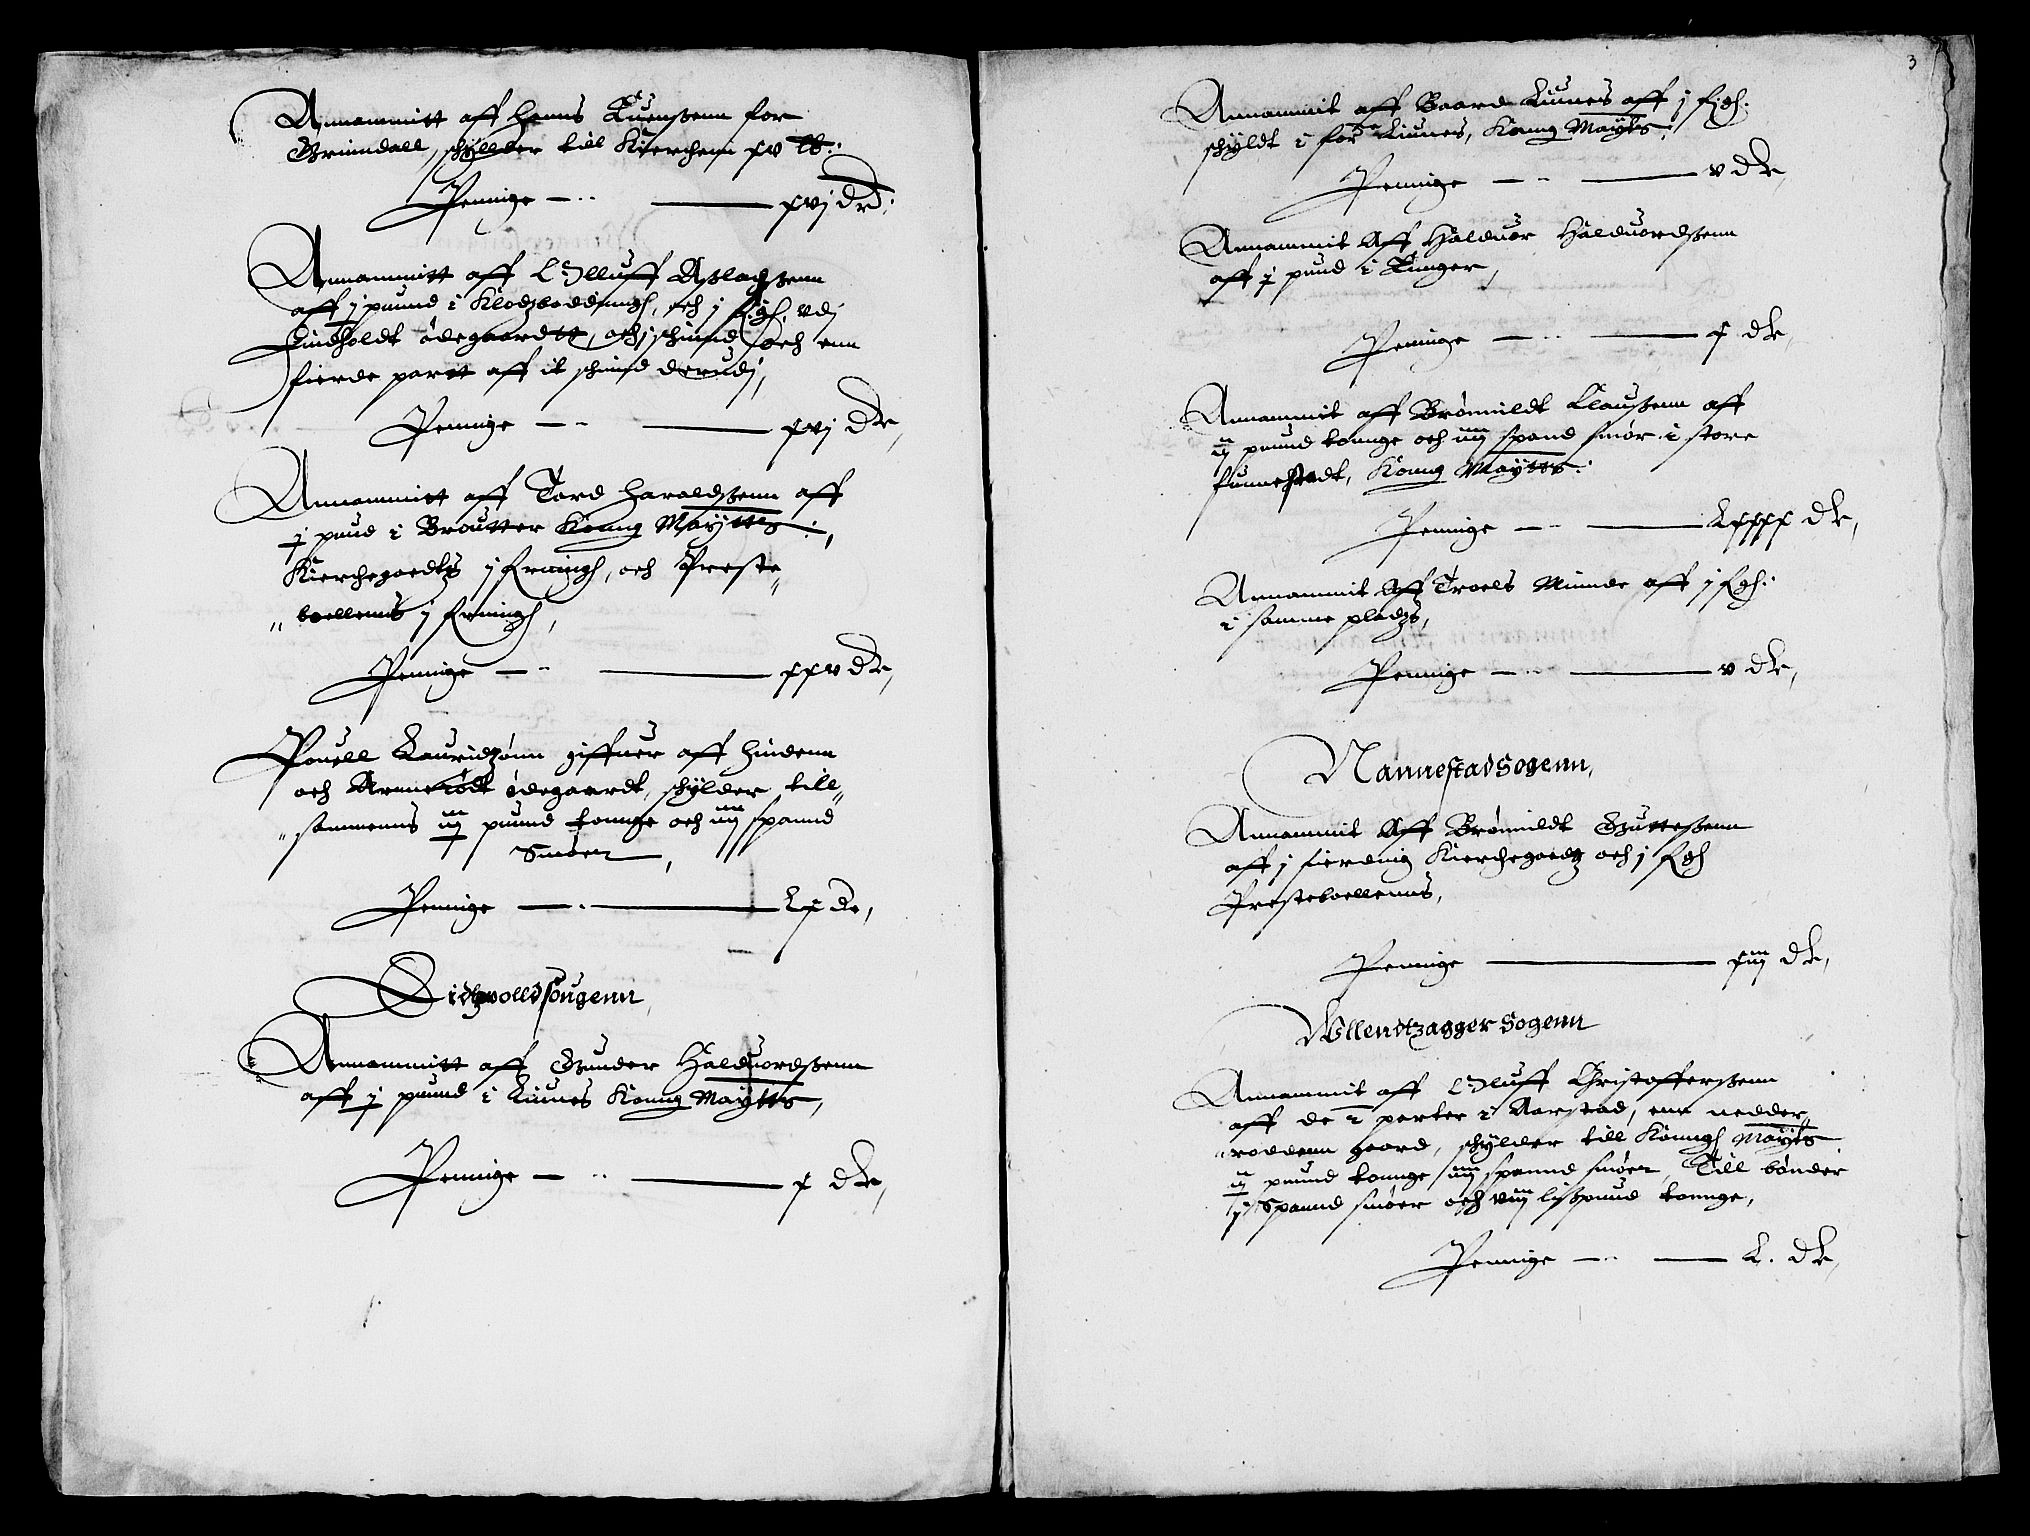 Annammitt aff Hanns Tuenßenn for
Grimdall, schyllder till Kierchenn xv lb:
Pennige — xvj dr:
Annammitt aff Olluff Aßlachßenn
aff j pund i Klodzboddingh, och j figh. vdj
Lindholdt ødegaardtt, och j schinnd och enn
fierde partt aff it schind derudj,
Pennige — xvj dr,
Annammitt aff Tord Haraldßenn aff
j pund i Broutter Konng Maÿtts:,
Kierchegoedtz j firingh, och Preste„
„boellenns j firningh,
Pennige — xxv dr,
Pouell Lauridzønn giffuer aff Hindenn
och Arnerødt ødegaardt, schylder till„
„sammenns iij pund tonnge och iiij spannd
Smøer,
Pennige — Lx dr,
Eidtzvolld sougenn,
Annammitt aff Gunder Halduordßenn
aff j pund i Liunes Konng Maÿtts,
Pennige — x dr,
3
Annammit aff Baard Liunes aff j figh:
schyldt i for: Liunes, Konng Maÿts:
Pennige — v dr,
Annammit Aff Halduor Halduordßenn
aff j pund i Tinger,
Pennige — x dr,
Annammit aff Brønnildt Claußenn aff
iij pund tonnge och iiij spand smør i store
finnestadt, Konng Maÿtts:
Pennige — Lxxxx dr,
Annammit Aff Troels Minde aff j figh:
i samme pladtzs,
Pennige — v dr,
Nannestad sogenn,
Annammit Aff Brønnildt Gutteßenn
aff j fierdnig Kierchegoedtz och j figh
Presteboellenns,
Pennige — xiij dr,
Wllendtzagger sogenn
Annammit aff Olluff Christofferßenn
aff de 2 parter i Aarstad, enn nedder„
„roddenn gaard, schylder till Konngh Maÿts
iij pund tonnge iiij spannd smøer, Till bønder
j Spannd smøer och viij lißpund tonnge,
Pennige — L. dr,